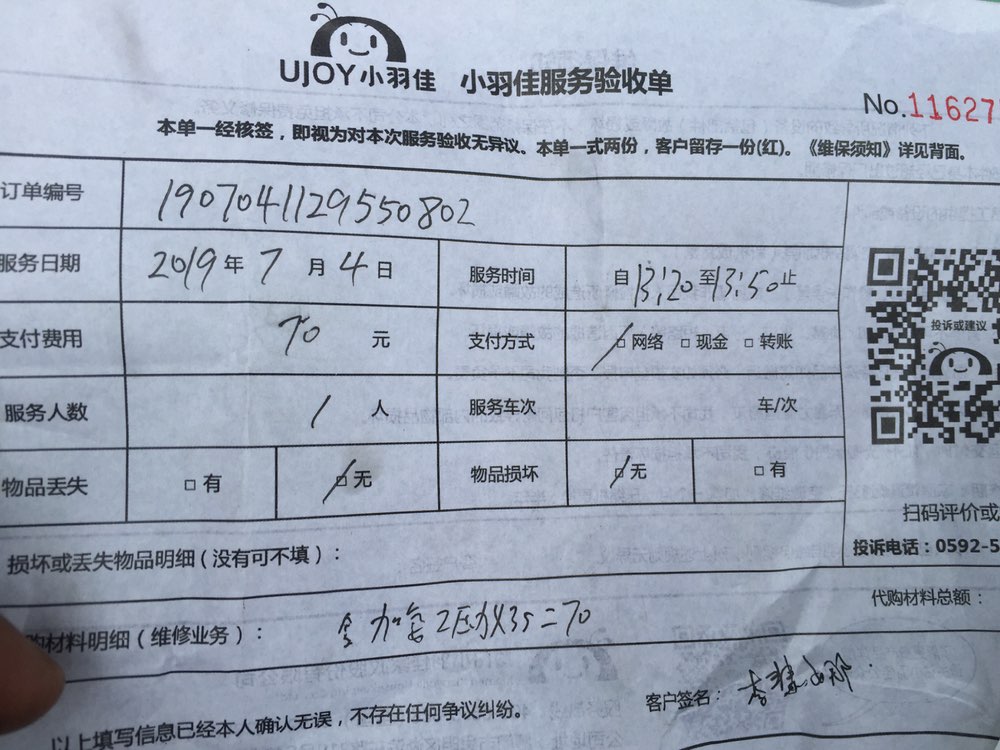 UJOY小羽佳 小羽佳服务验收单
No.11627
本单一经核签，即视为对本次服务验收无异议、本单一式两份，客户留存一份(红)。《维保须知》详见背面。
订单编号 1907041129550802
服务日期 2019年7月4日 服务时间 自13:20至13:50止
支付费用 70元 支付方式 网络 现金 转账
投诉或建议
服务人数 1人 服务车次 车/次
物品丢失 有 无 物品损坏 无 有
扫码评价或
投诉电话：0592-5
损坏或丢失物品明细（没有可不填）：
代购材料总额：
购材料明细（维修业务）： 2压力X35=70
客户签名：
以上填写信息已经本人确认无误，不存在任何争议纠纷。